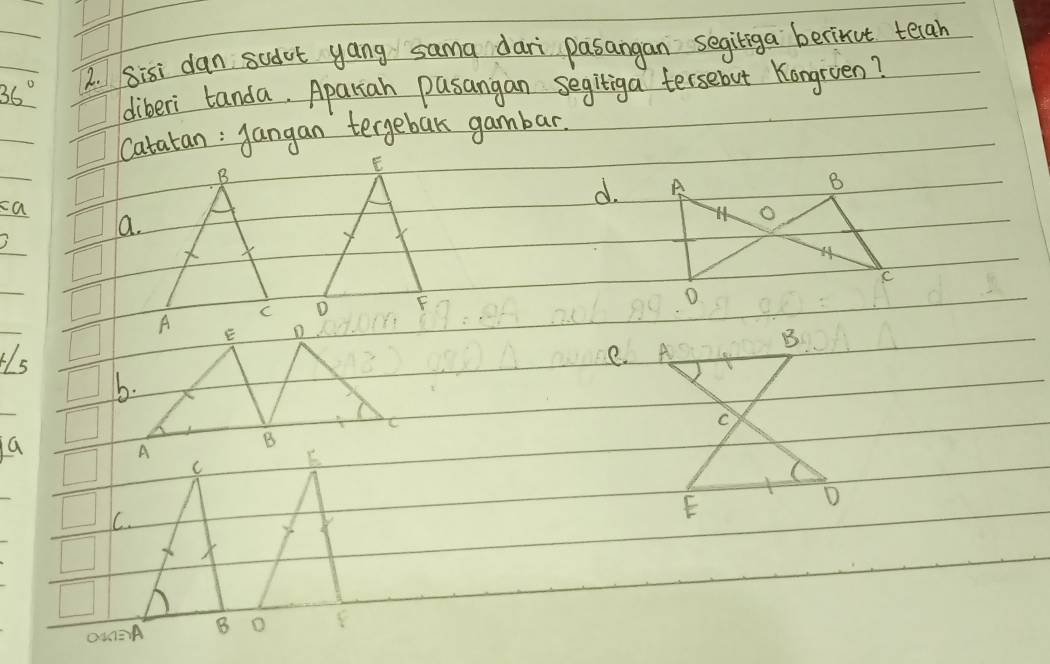 2. Sisi dan sudut yang sama dari pasangan segitiga berikut telah
diberi tanda. Apakah pasangan segitiga tersebut Kongruen?
Catatan: Jangan terjebak gambar.
36°
a.
B
A
C
E
D
F
d.
A
B
O
D
C
b.
E
D
A
B
C
e.
A
B
C
E
D
c.
C
A
B
E
D
F